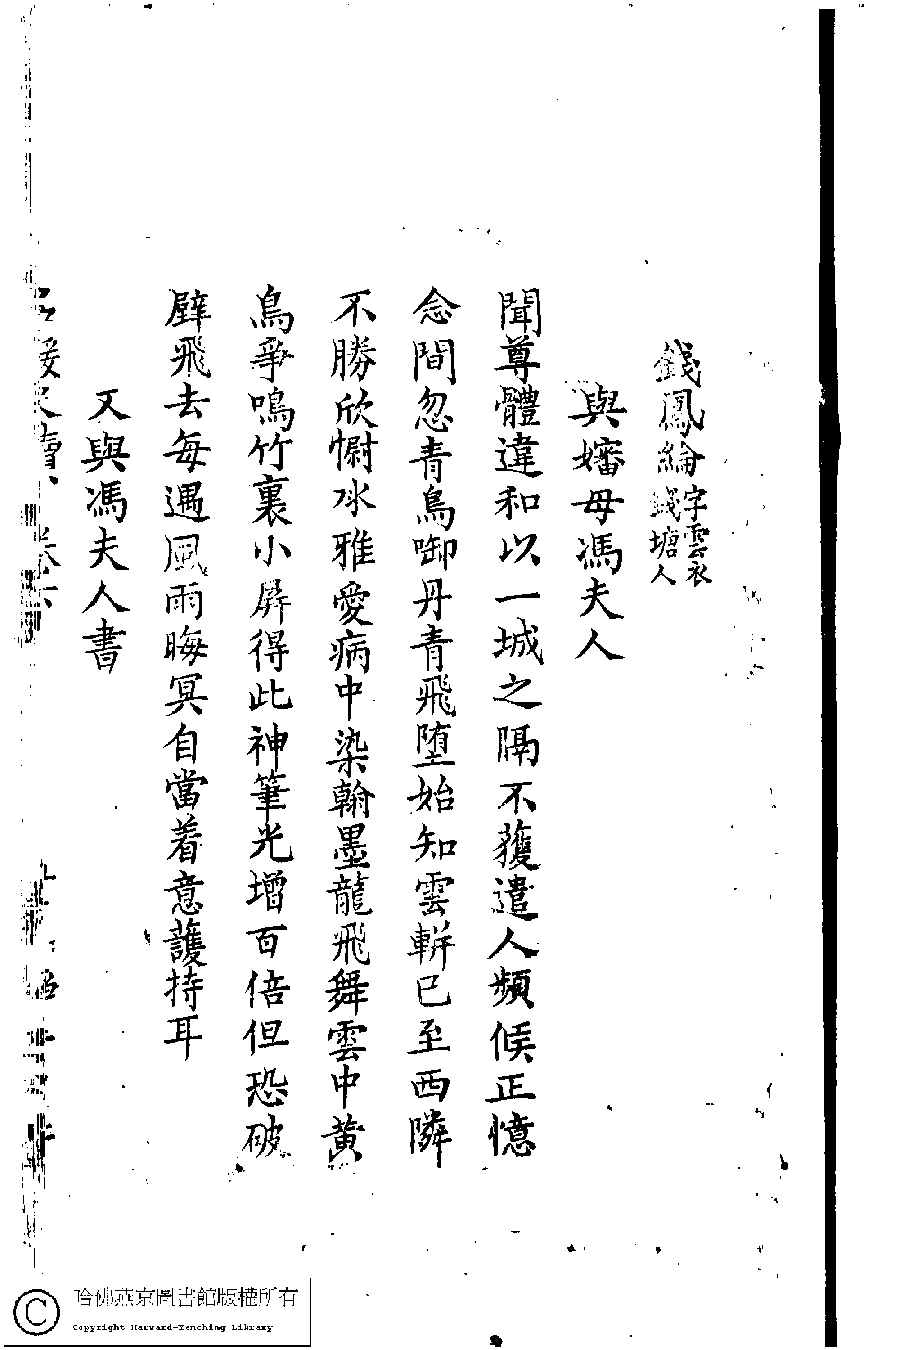 錢鳳綸 字雲衣 錢塘人
與嬸母馮夫人
聞尊體違和以一城之隔不獲遣人頻候正憶
念間忽青鳥啣丹青飛墮始知雲軿已至西隣
不勝欣慰冰雅愛病中染翰墨龍飛舞雲中黃
鳥爭鳴竹裏小屏得此神筆光增百倍但恐破
壁飛去每遇風雨晦冥自當着意護持耳
又與馮夫人書
哈佛燕京圖書館版權所有
Copyright Harvard-Yenching Library